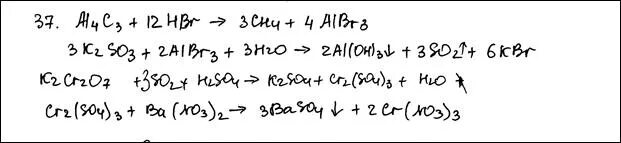 37. Al4C3 + 12HBr → 3CH4 + 4AlBr3
3K2SO3 + 2AlBr3 + 3H2O → 2Al(OH)3↓ + 3SO2↑ + 6KBr
K2Cr2O7 + 3SO2 + H2SO4 → K2SO4 + Cr2(SO4)3 + H2O
Cr2(SO4)3 + Ba(NO3)2 → 3BaSO4↓ + 2Cr(NO3)3